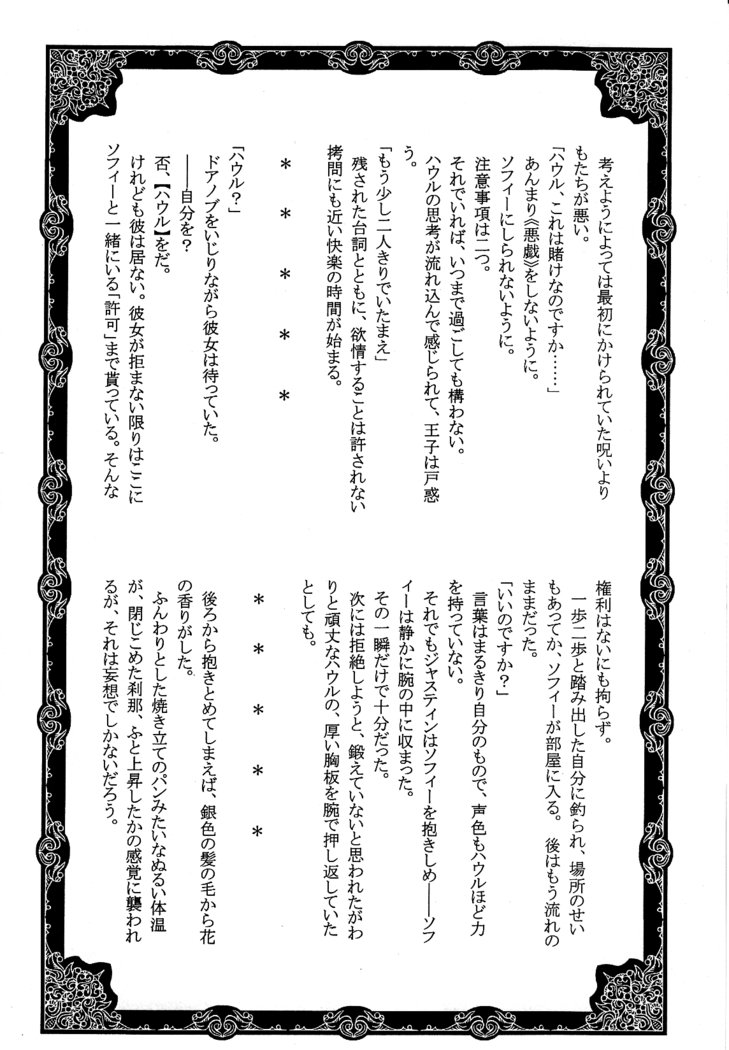 考えようによっては最初にかけられていた呪いより
もたちが悪い。
「ハウル、これは賭けなのですか……」
あんまり《悪戯》をしないように。
ソフィーにしられないように。
注意事項は二つ。
それでいれば、いつまで過ごしても構わない。
ハウルの思考が流れ込んで感じられて、王子は戸惑
う。
「もう少し二人きりでいたまえ」
残された台詞とともに、欲情することは許されない
拷問にも近い快楽の時間が始まる。
＊　＊　＊　＊　＊
「ハウル？」
ドアノブをいじりながら彼女は待っていた。
――自分を？
否、【ハウル】をだ。
けれども彼は居ない。彼女が拒まない限りはここに
ソフィーと一緒にいる「許可」まで貰っている。そんな
権利はないにも拘らず。
一歩二歩と踏み出した自分に釣られ、場所のせい
もあってか、ソフィーが部屋に入る。　後はもう流れの
ままだった。
「いいのですか？」
言葉はまるきり自分のもので、声色もハウルほど力
を持っていない。
それでもジャスティンはソフィーを抱きしめ――ソフ
ィーは静かに腕の中に収まった。
その一瞬だけで十分だった。
次には拒絶しようと、鍛えていないと思われたがわ
りと頑丈なハウルの、厚い胸板を腕で押し返していた
としても。
＊　＊　＊　＊　＊
後ろから抱きとめてしまえば、銀色の髪の毛から花
の香りがした。
ふんわりとした焼き立てのパンみたいなぬるい体温
が、閉じこめた刹那、ふと上昇したかの感覚に襲われ
るが、それは妄想でしかないだろう。